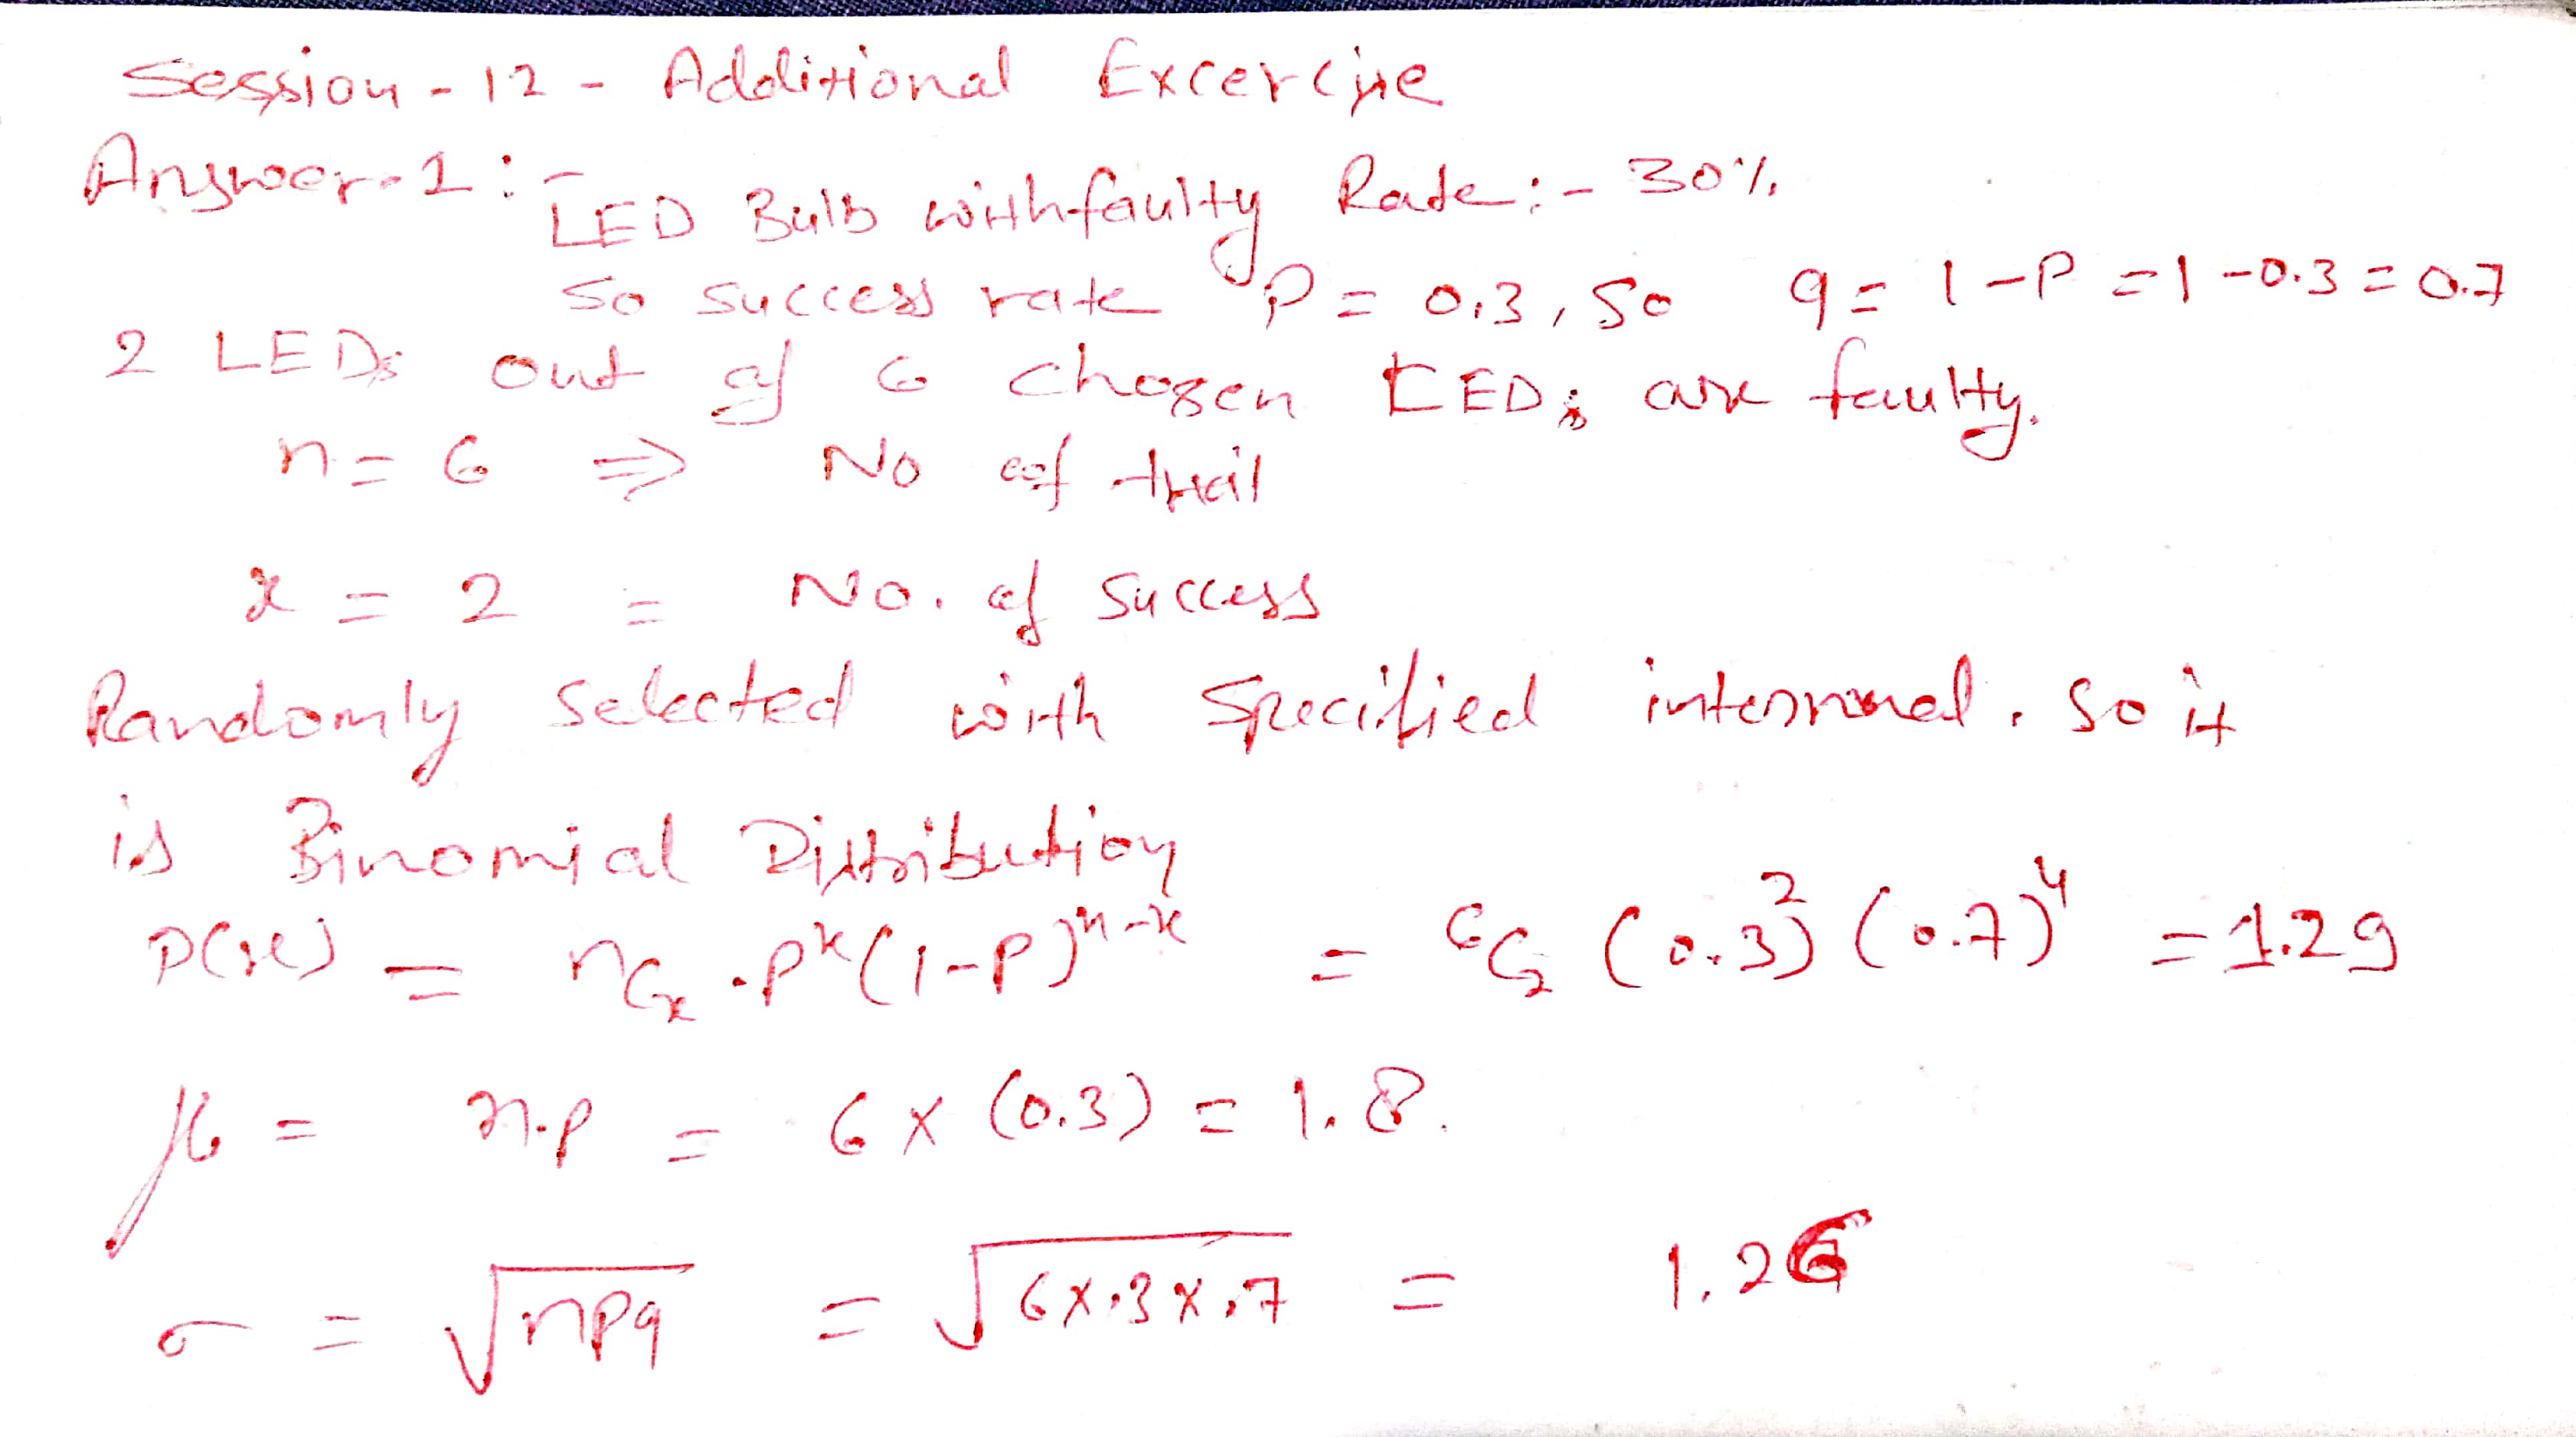 Session - 12 - Additional Excercise
Answer-1 :-
LED Bulb with faulty Rate :- 30%
So success rate P = 0.3, So q = 1-P = 1-0.3 = 0.7
2 LEDs out of 6 chosen LEDs are faulty.
n = 6 ⇒ No of trail
x = 2 = No. of Success
Randomly selected with Specified . So it
is Binomial Distribution
P(x) = nCx . P^x (1-P)^n-x = 6C2 (0.3)^2 (0.7)^4 = 1.29
μ = n.p = 6 x (0.3) = 1.8.
σ = √npq = √6x.3x.7 = 1.26